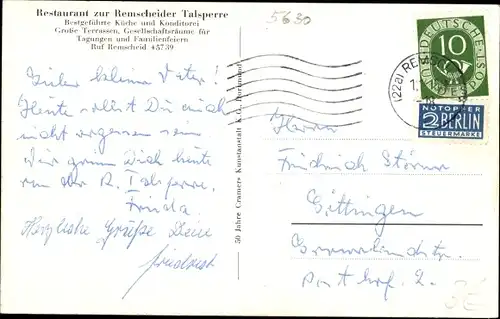 Restaurant zur Remscheider Talsperre
Bestgeführte Küche und Konditorei
Große Terrassen, Gesellschaftsräume für
Tagungen und Familienfeiern
Ruf Remscheid 45739
Lieber kleiner Vater!
Heute sollst Du auch
nicht vergessen sein
Wir grüßen Dich heute
von der R. Talsperre.
Frieda
Herzliche Grüße Dein
Friedrich
50 Jahre Cramers Kunstanstalt K.G. Dortmund
5630
DEUTSCHE BUNDESPOST
10
(22a) REMSCHEID
NOTOPFER
2 BERLIN
STEUERMARKE
Herrn
Friedrich Störmer
Göttingen